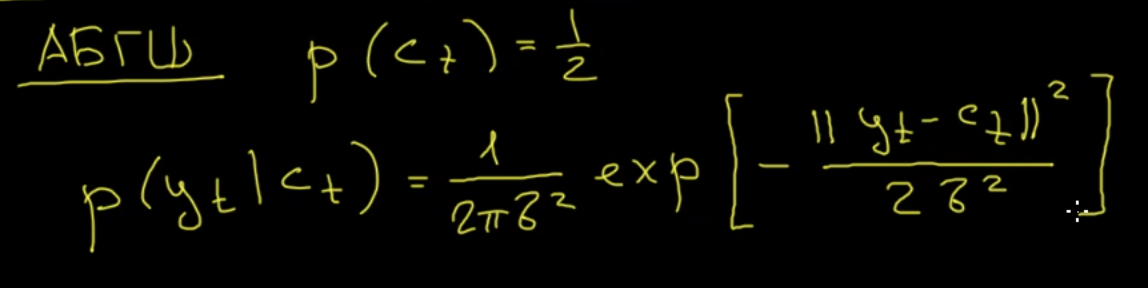 АБГШ p(c_t) = 1/2
p(y_t | c_t) = 1/(2πσ²) exp[ - ||y_t - c_t||² / (2σ²) ]